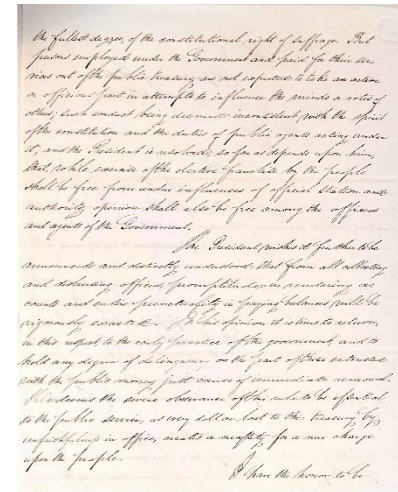 the fullest degree, of the constitutional right of suffrage. But
persons employed under the Government and paid for their ser
vices out of the public treasury are not expected to take an active
or officious part in attempts to influence the minds or votes of
others, such conduct being deemed inconsistent with the spirit
of the constitution and the duties of public agents acting under
it, and the President is resolved, so far as depends upon him,
that, while exercise of the elective franchise by the people
shall be free from undue influences of official station and
authority opinion shall also be free among the officers
and agents of the Government.
The President, wishes it further to be
announced and distinctly understood that from all collecting
and disbursing officers promptitude in rendering ac
counts and entire punctuality in paying balances will be
rigorously exacted. In his opinion it is time to return,
in this respect to the early practice of the government, and to
hold any degree of delinquency on the part of those entrusted
with the public money just cause of immediate removal.
He deems the severe observance of this rule to be essential
to the public service, as every dollar lost to the treasury by
unfaithfulness in office, creates a necessity for a new charge
upon the people.
I have the honor to be